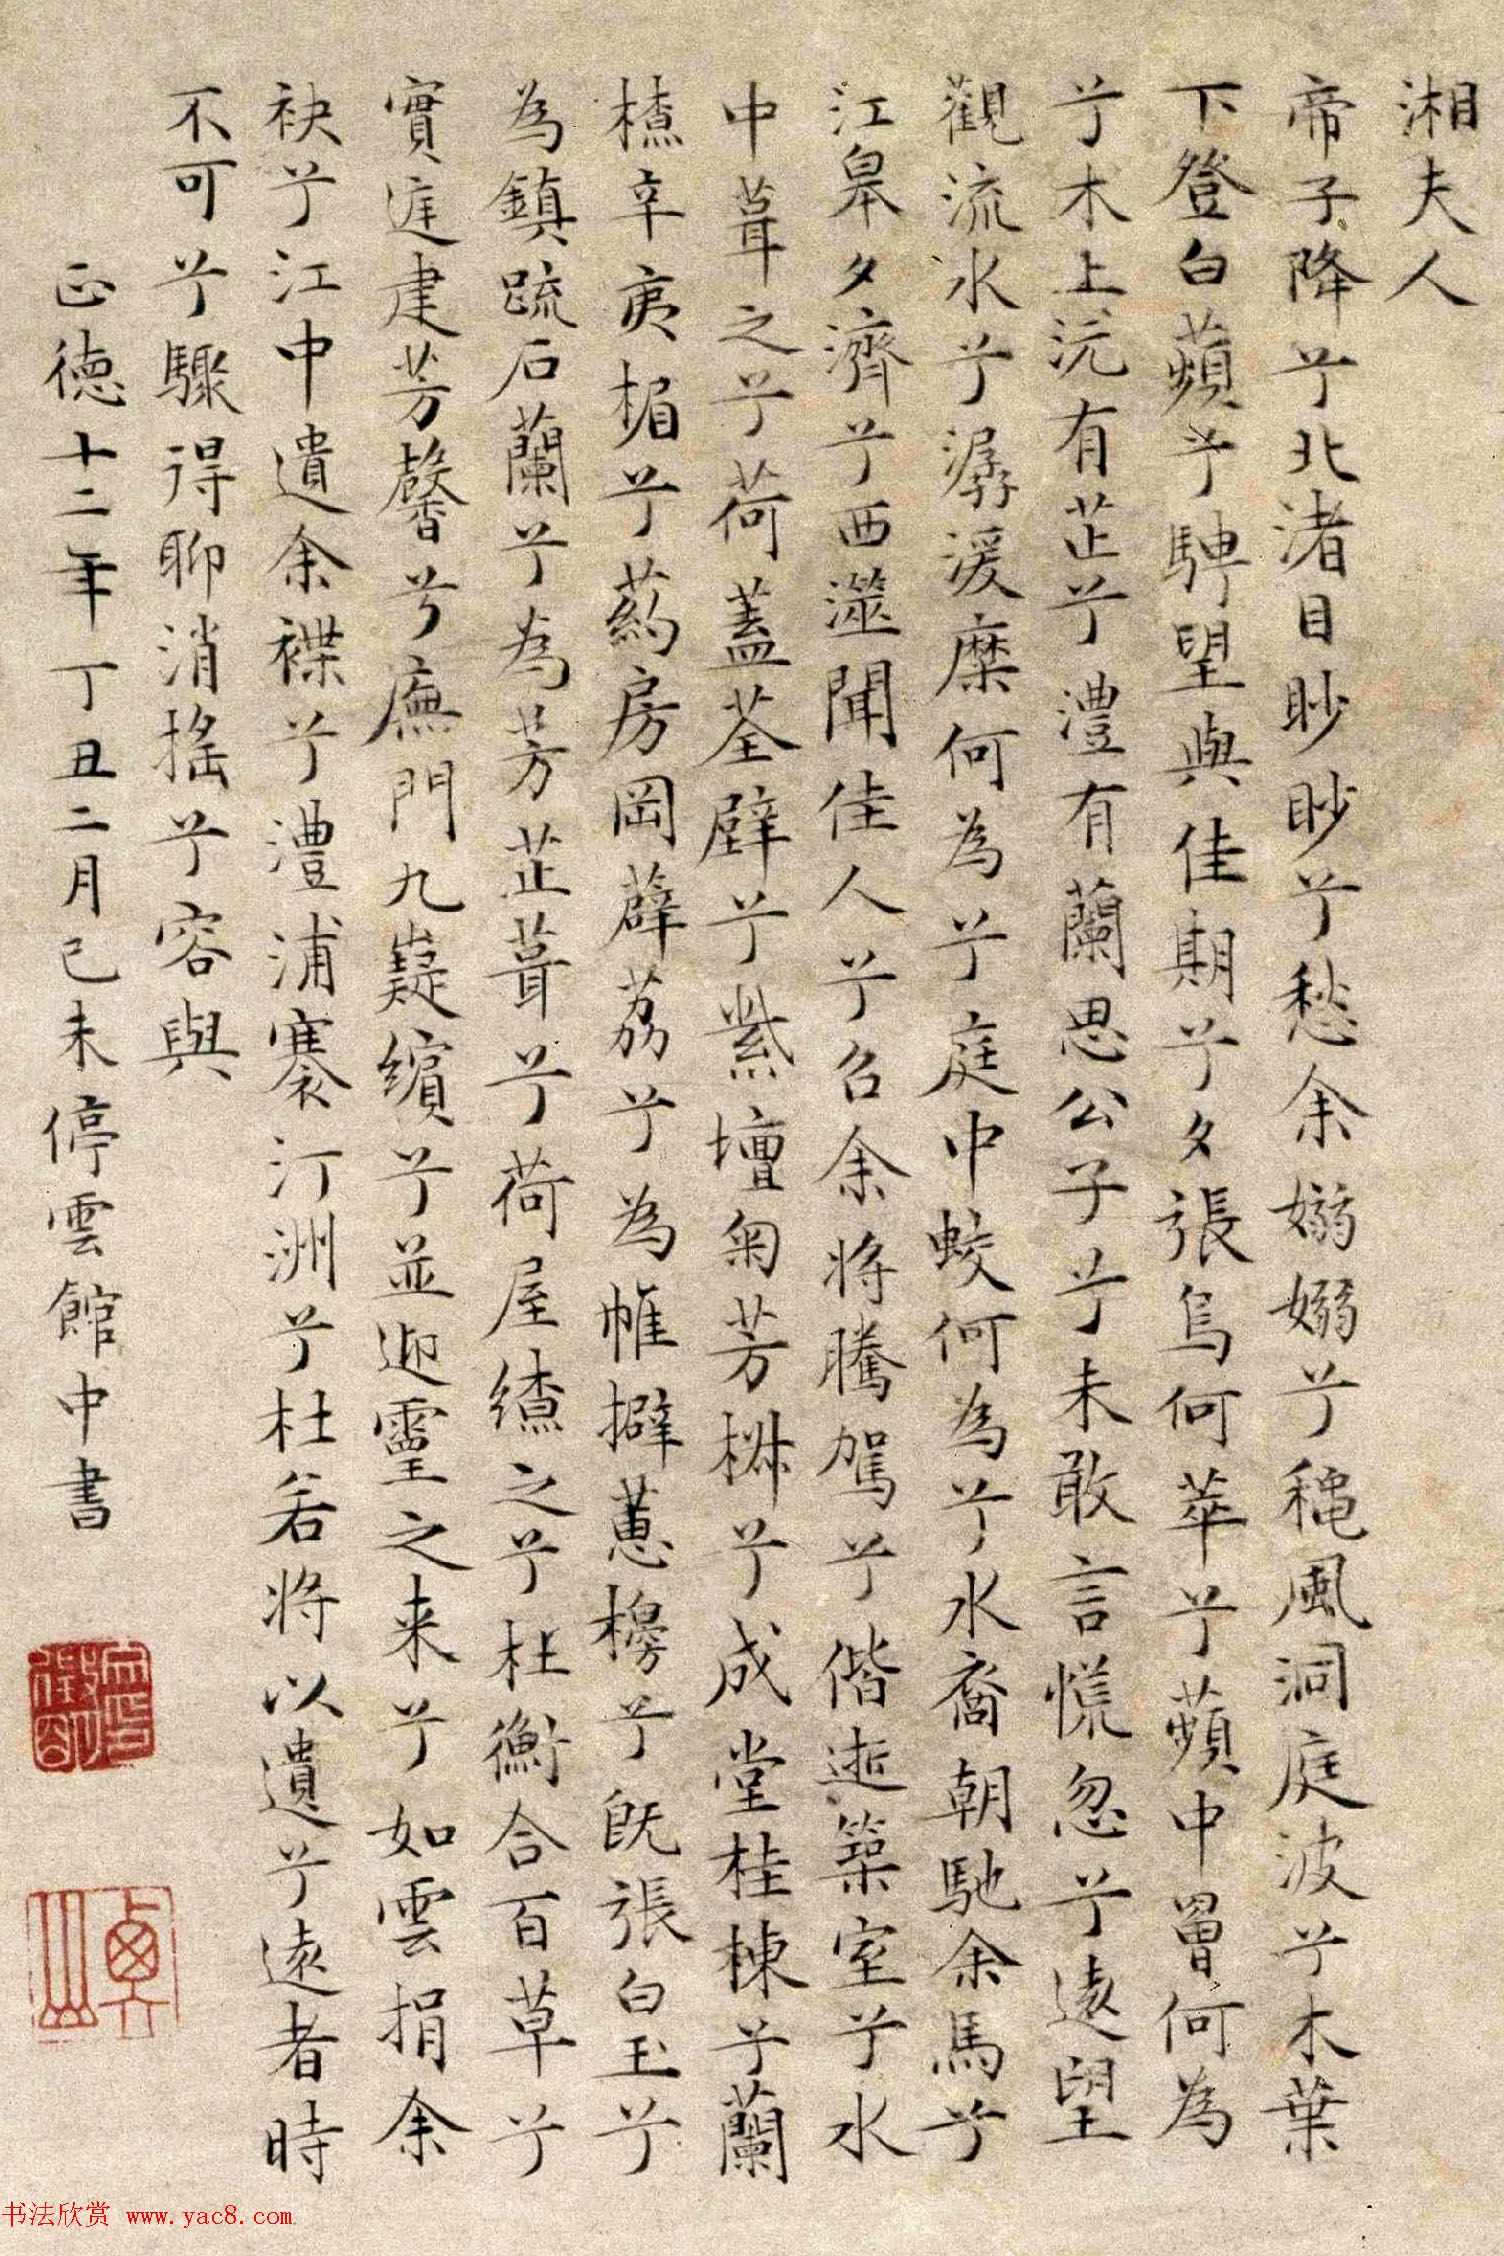 湘夫人
帝子降兮北渚目眇眇兮愁余嫋嫋兮穐風洞庭波兮木葉
下登白蘋兮騁望與佳期兮夕張鳥何萃兮蘋中罾何為
兮木上沅有芷兮澧有蘭思公子兮未敢言慌忽兮遠望
觀流水兮潺湲麋何為兮庭中蛟何為兮水裔朝馳余馬兮
江皋夕濟兮西澨聞佳人兮召余將騰駕兮偕逝築室兮水
中葺之兮荷蓋荃壁兮紫壇匊芳椒兮成堂桂棟兮蘭
橑辛夷楣兮葯房罔薜荔兮為帷擗蕙櫋兮既張白玉兮
為鎮疏石蘭兮為芳芷葺兮荷屋繚之兮杜衡合百草兮
實庭建芳馨兮廡門九嶷繽兮並迎靈之来兮如雲捐余
袂兮江中遺余褋兮澧浦搴汀洲兮杜若將以遺兮遠者時
不可兮驟得聊消搖兮容與
正德十二年丁丑二月己未停雲館中書
书法欣赏 www.yac8.com